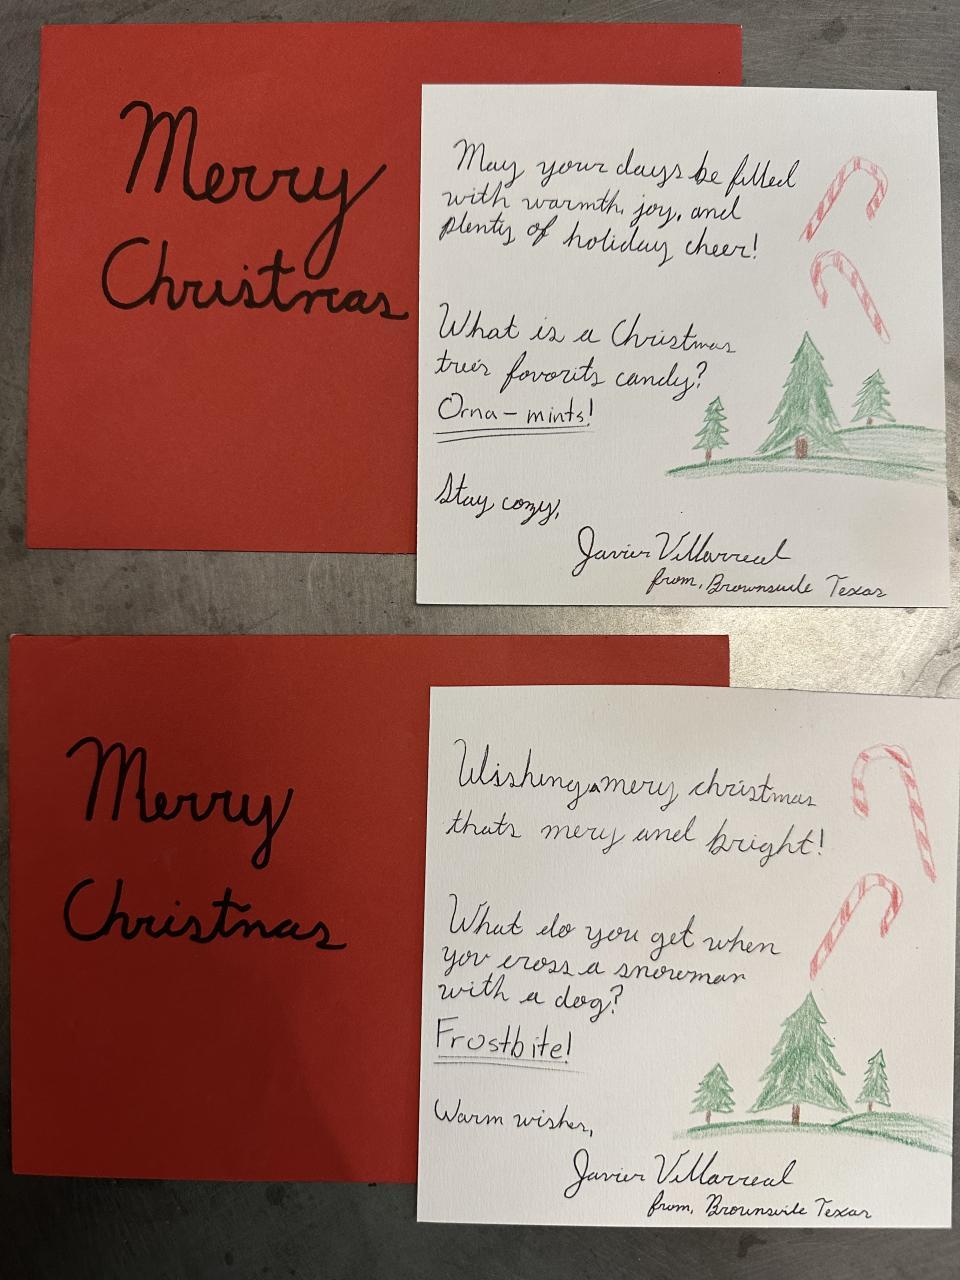 Merry
Christmas
May your days be filled
with warmth, joy, and
plenty of holiday cheer!
What is a Christmas
tree's favorite candy?
Orna-mints!
Stay cozy,
Javier Villarreal
from, Brownsville Texas
Merry
Christmas
Wishing a mery christmas
thats mery and bright!
What do you get when
you cross a snowman
with a dog?
Frostbite!
Warm wishes,
Javier Villarreal
from, Brownsville Texas